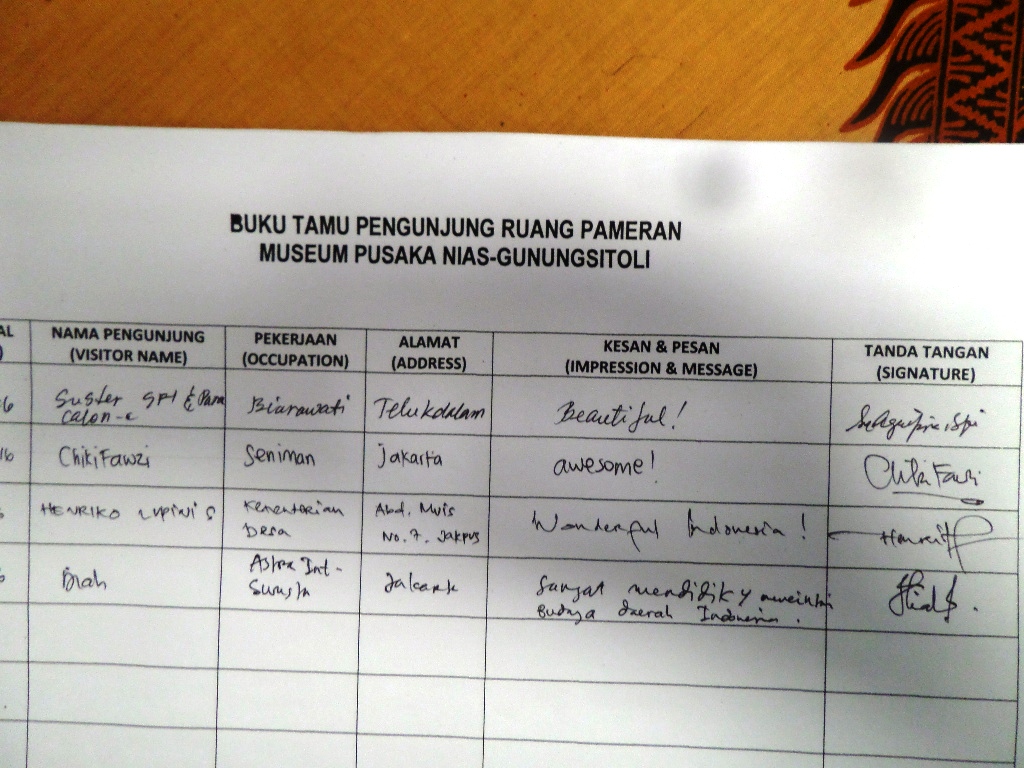 BUKU TAMU PENGUNJUNG RUANG PAMERAN
MUSEUM PUSAKA NIAS-GUNUNGSITOLI
AL
)
NAMA PENGUNJUNG
(VISITOR NAME)
PEKERJAAN
(OCCUPATION)
ALAMAT
(ADDRESS)
KESAN & PESAN
(IMPRESSION & MESSAGE)
TANDA TANGAN
(SIGNATURE)
6
Suster & Para
calon-c
Biarawati
Telukdalam
Beautiful!
16
Chiki Fawzi
Seniman
Jakarta
awesome!
Chiki Fawzi
HENRIKO
Kementerian
Desa
Abd. Muis
No. 7. Jakpus
Wonderful Indonesia!
Astra Int-
Jakarta
Sangat mendidik y mencintai
Budaya daerah Indonesia.